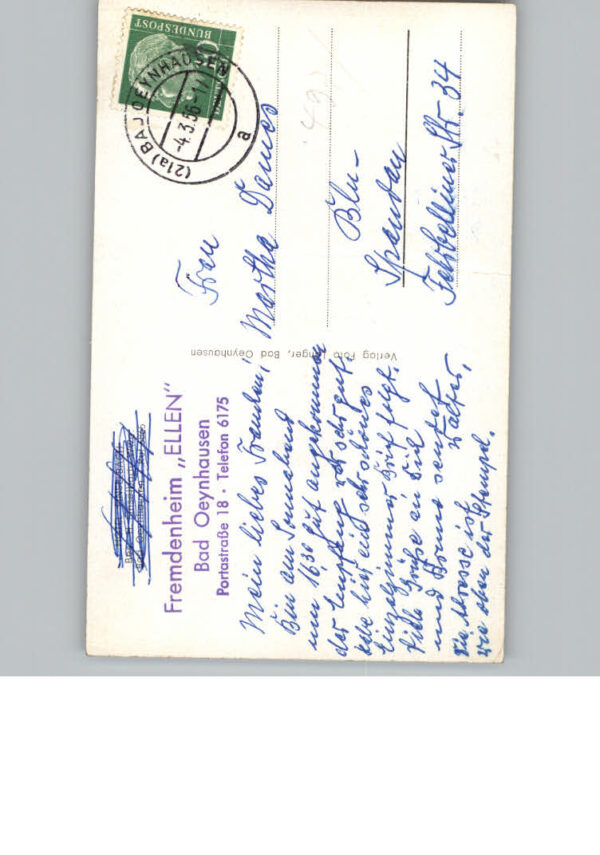 BUNDESPOST
(21a) BAD OEYNHAUSEN
-4.3.56-11
a
Fremdenheim „ELLEN"
Bad Oeynhausen
Portastraße 18 · Telefon 6175
Mein liebes Frauchen!
Bin am Sonnabend
um 1630 gut angekommen
der Empfang war sehr gut.
habe hier ein sehr schönes
Einzelzimmer Brief folgt.
Viele Grüße an Dich
und Bruno sendet
Walter,
die Adresse ist
wie oben der Stempel.
Verlag Foto Bad Oeynhausen
Frau
Martha Dames
Bln-
Spandau
Fehrbelliner Str. 34